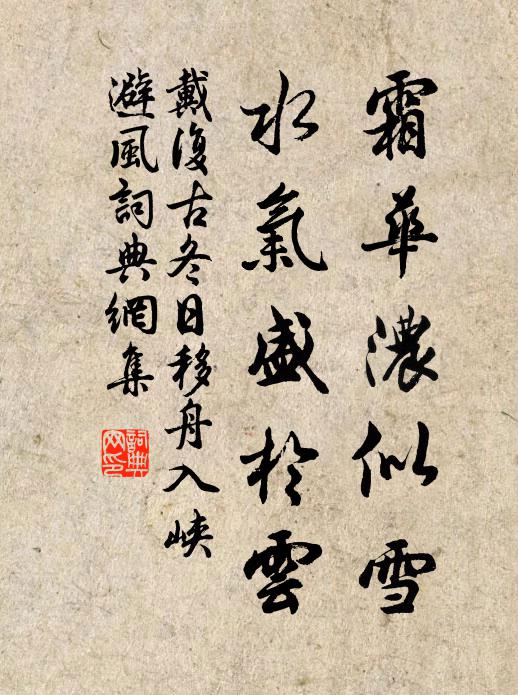 霜華濃似雪
水氣盛於雲
戴復古冬日移舟入峽
避風詞典網集
詞典
网印